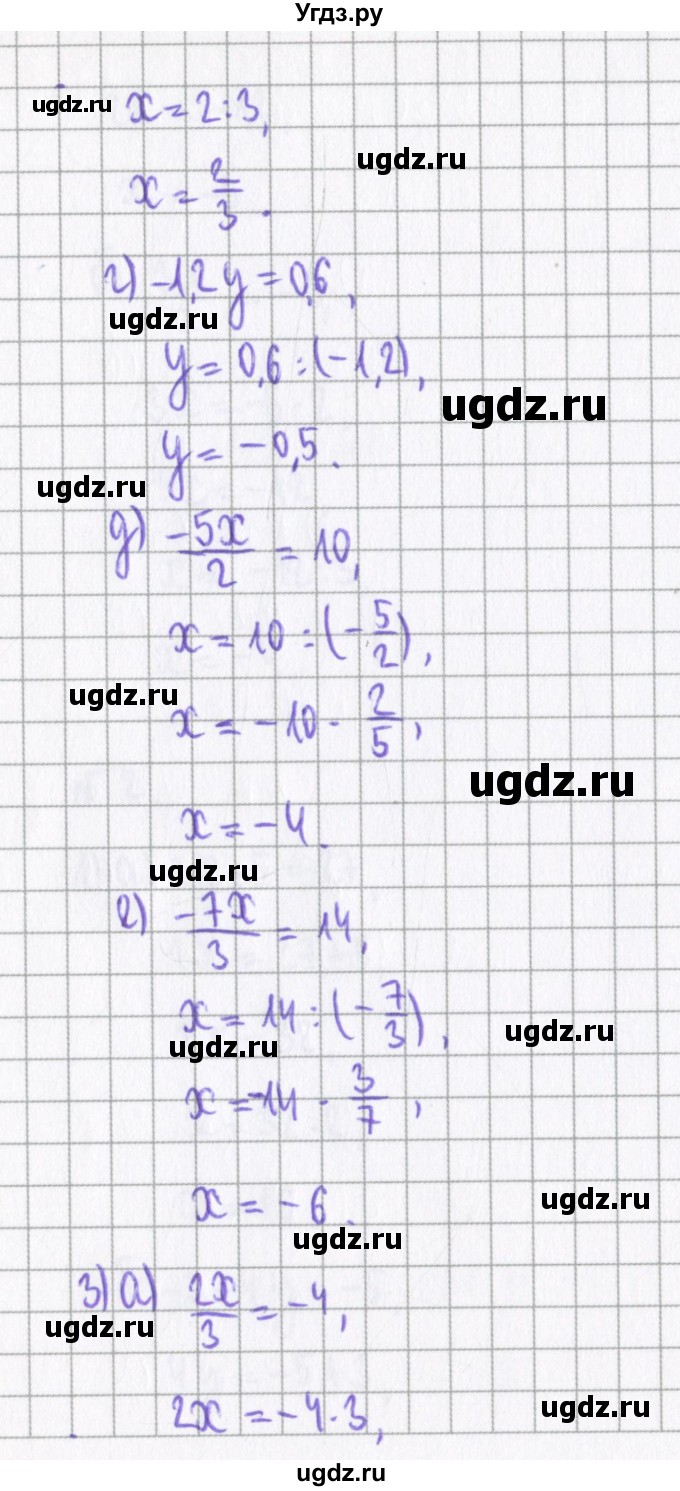 Угдз.ру
ugdz.ru
x = 2 : 3,
ugdz.ru
x = 2/3.
г) -1,2y = 0,6,
ugdz.ru
y = 0,6 : (-1,2),
ugdz.ru
y = -0,5.
ugdz.ru
д) -5x/2 = 10,
x = 10 : (-5/2),
ugdz.ru
x = -10 · 2/5,
ugdz.ru
x = -4.
ugdz.ru
е) -7x/3 = 14,
x = 14 : (-7/3),
ugdz.ru
ugdz.ru
x = -14 · 3/7,
x = -6.
ugdz.ru
ugdz.ru
3) а) 2x/3 = -4,
ugdz.ru
2x = -4 · 3,
ugdz.ru
ugdz.ru